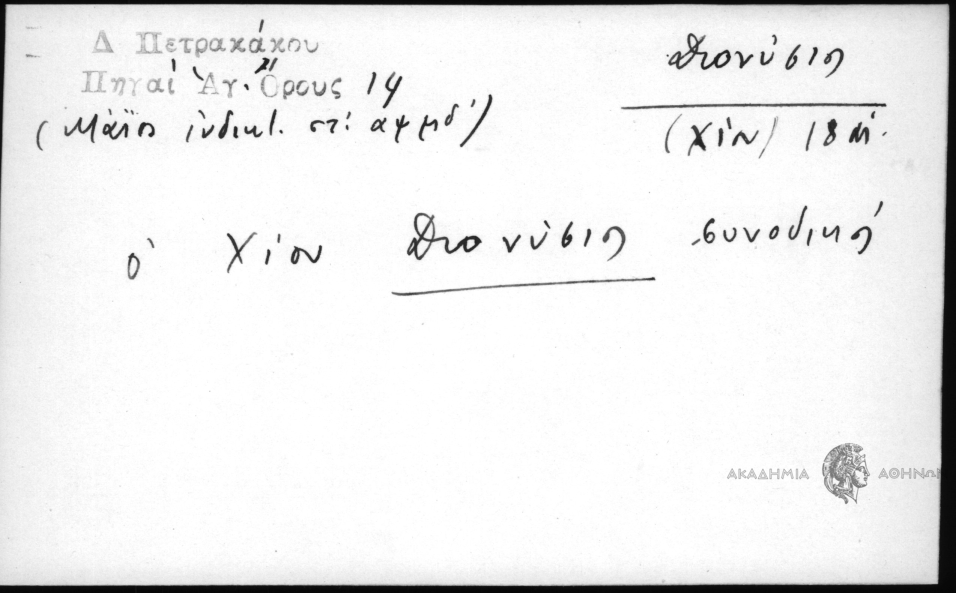 Δ Πετρακάκου
Πηγαί Ἁγ. Ὄρους 14
(Μάϊος ἰνδικτ. στ. αψμδ')
Διονύσιος
(Χίου) 18 αἰ.
ὁ Χίου Διονύσιος συνοδικός
ΑΚΑΔΗΜΙΑ ΑΘΗΝΩΝ